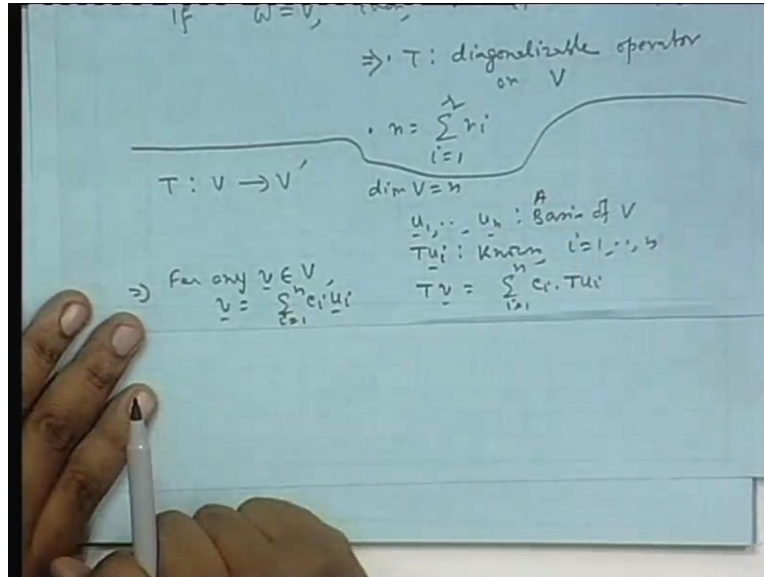 If W = V, then,
⇒ · T : diagonalizable operator
on V
· n = ∑_{i=1}^{r} r_i
T : V → V′ dim V = n
u_1, .., u_n : A Basis of V
T u_i : Known, i = 1, .., n
⇒ For any v ∈ V,
v = ∑_{i=1}^{n} c_i u_i T v = ∑_{i=1}^{n} c_i . T u_i